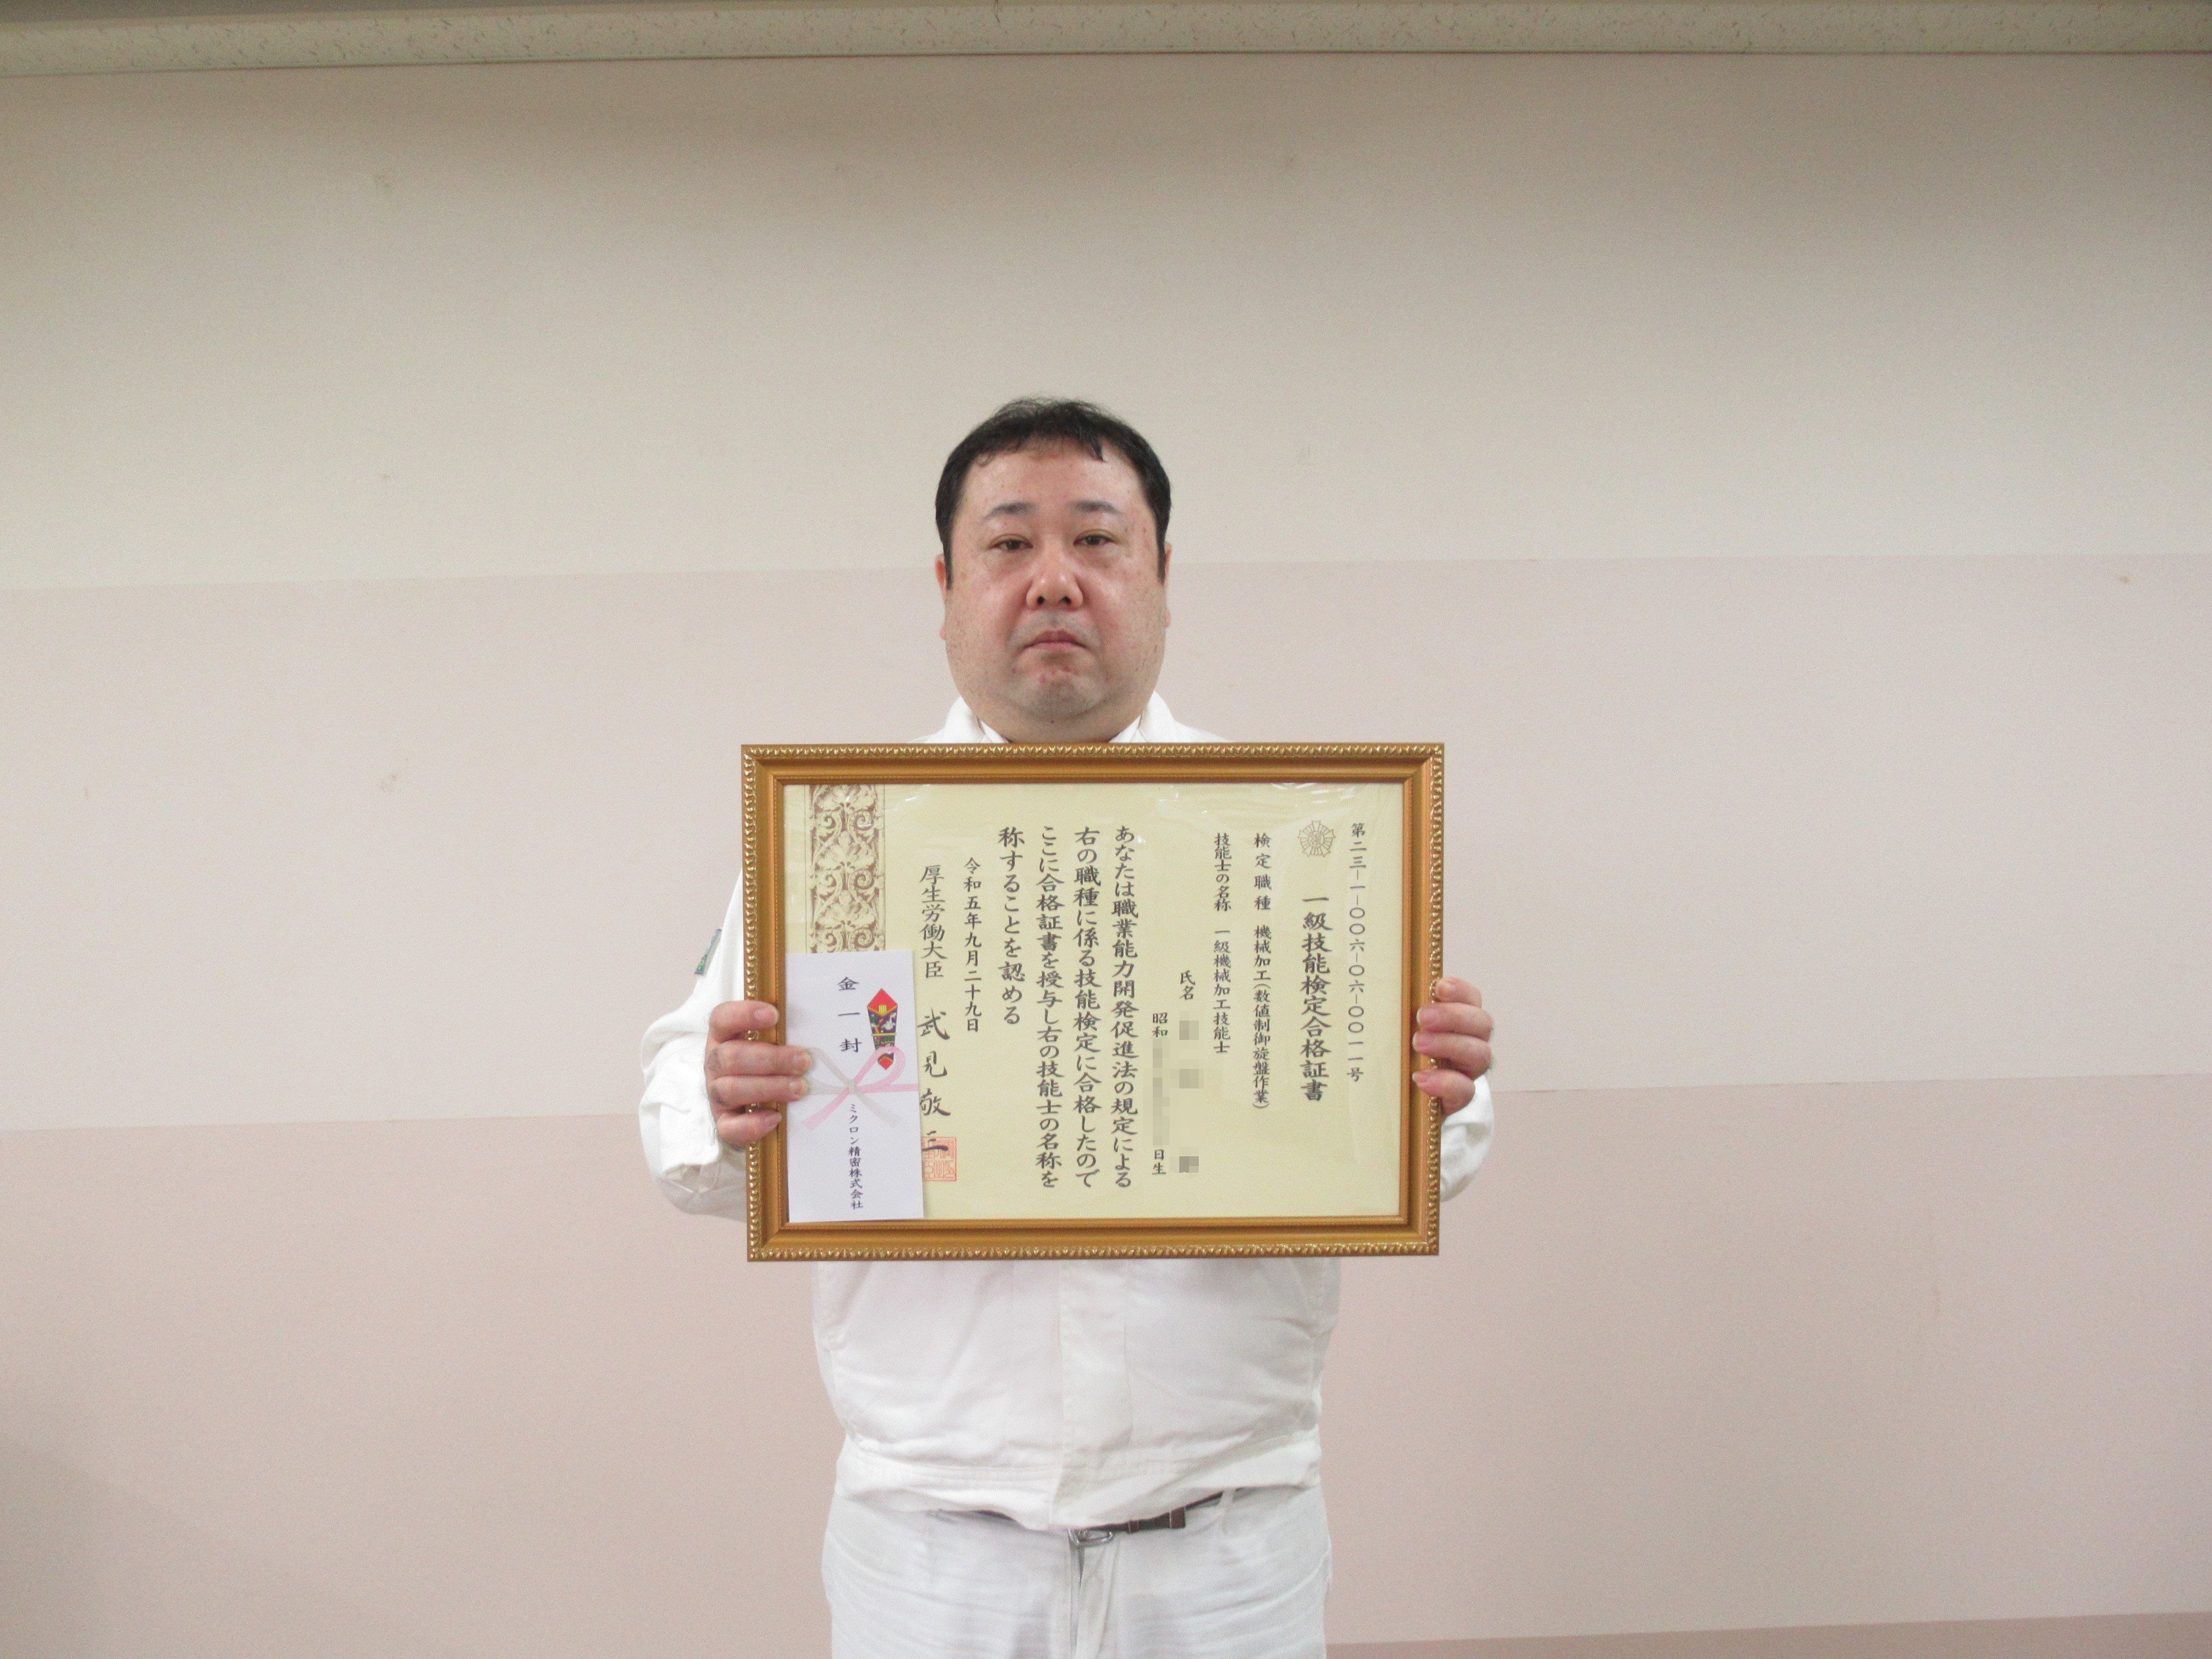 第二三-一-〇〇六-〇六-〇〇一一号
一級技能検定合格証書
検定職種 機械加工(数値制御旋盤作業)
技能士の名称 一級機械加工技能士
氏名
昭和 日生
あなたは職業能力開発促進法の規定による
右の職種に係る技能検定に合格したので
ここに合格証書を授与し右の技能士の名称を
称することを認める
令和五年九月二十九日
厚生労働大臣 武見敬三
金一封
ミクロン精密株式会社